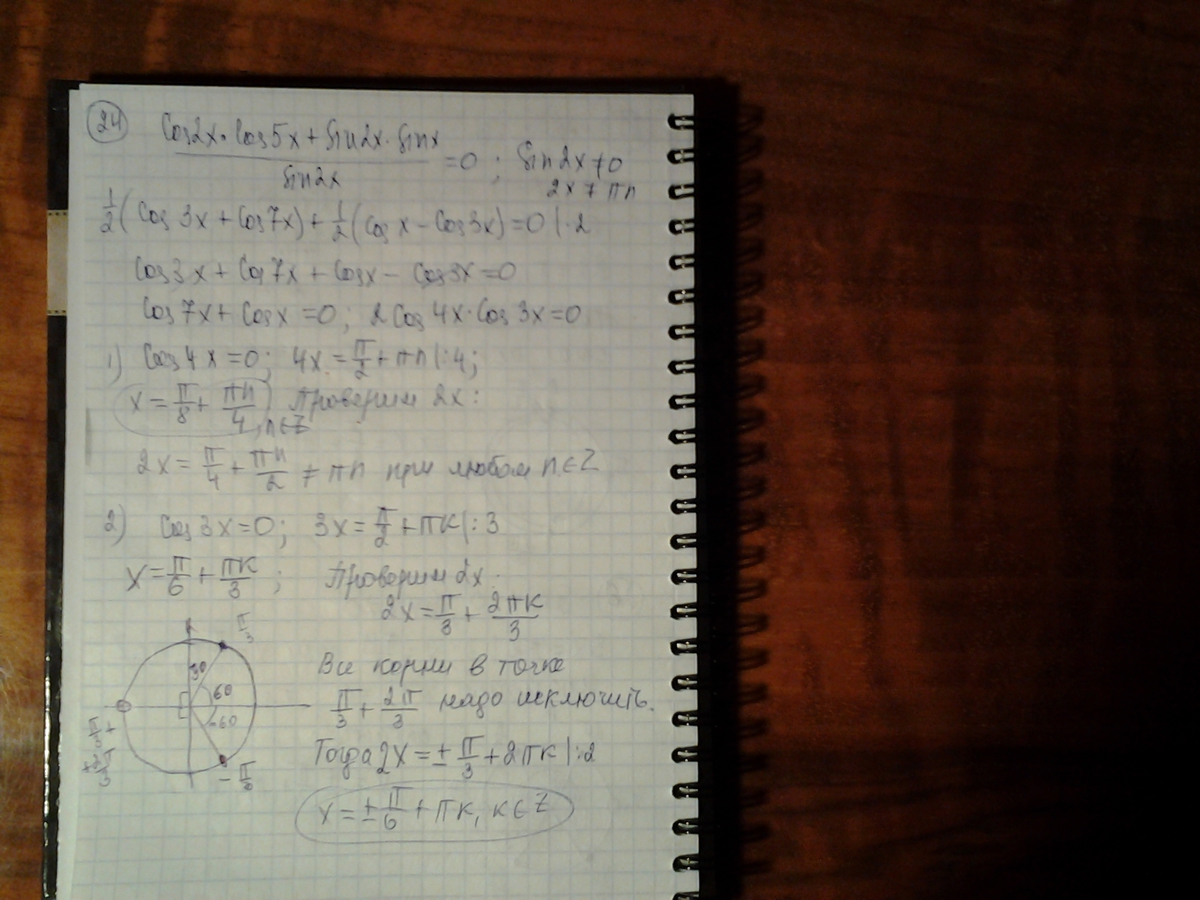 24
(cos2x·cos5x+sin2x·sinx)/sin2x =0; sin2x≠0
2x≠πn
1/2(cos3x+cos7x)+1/2(cosx-cos3x)=0|·2
cos3x+cos7x+cosx-cos3x=0
cos7x+cosx=0; 2cos4x·cos3x=0
1) cos4x=0; 4x=π/2+πn|:4;
x=π/8+πn/4, n∈Z Проверим 2x:
2x=π/4+πn/2≠πn при любом n∈Z
2) cos3x=0; 3x=π/2+πk|:3
x=π/6+πk/3; Проверим 2x.
2x=π/3+2πk/3
π/3
30
60
-60
-π/3
Все корни в точке
π/3+2π/3 надо исключить.
Тогда 2x=±π/3+2πk|:2
x=±π/6+πk, k∈Z